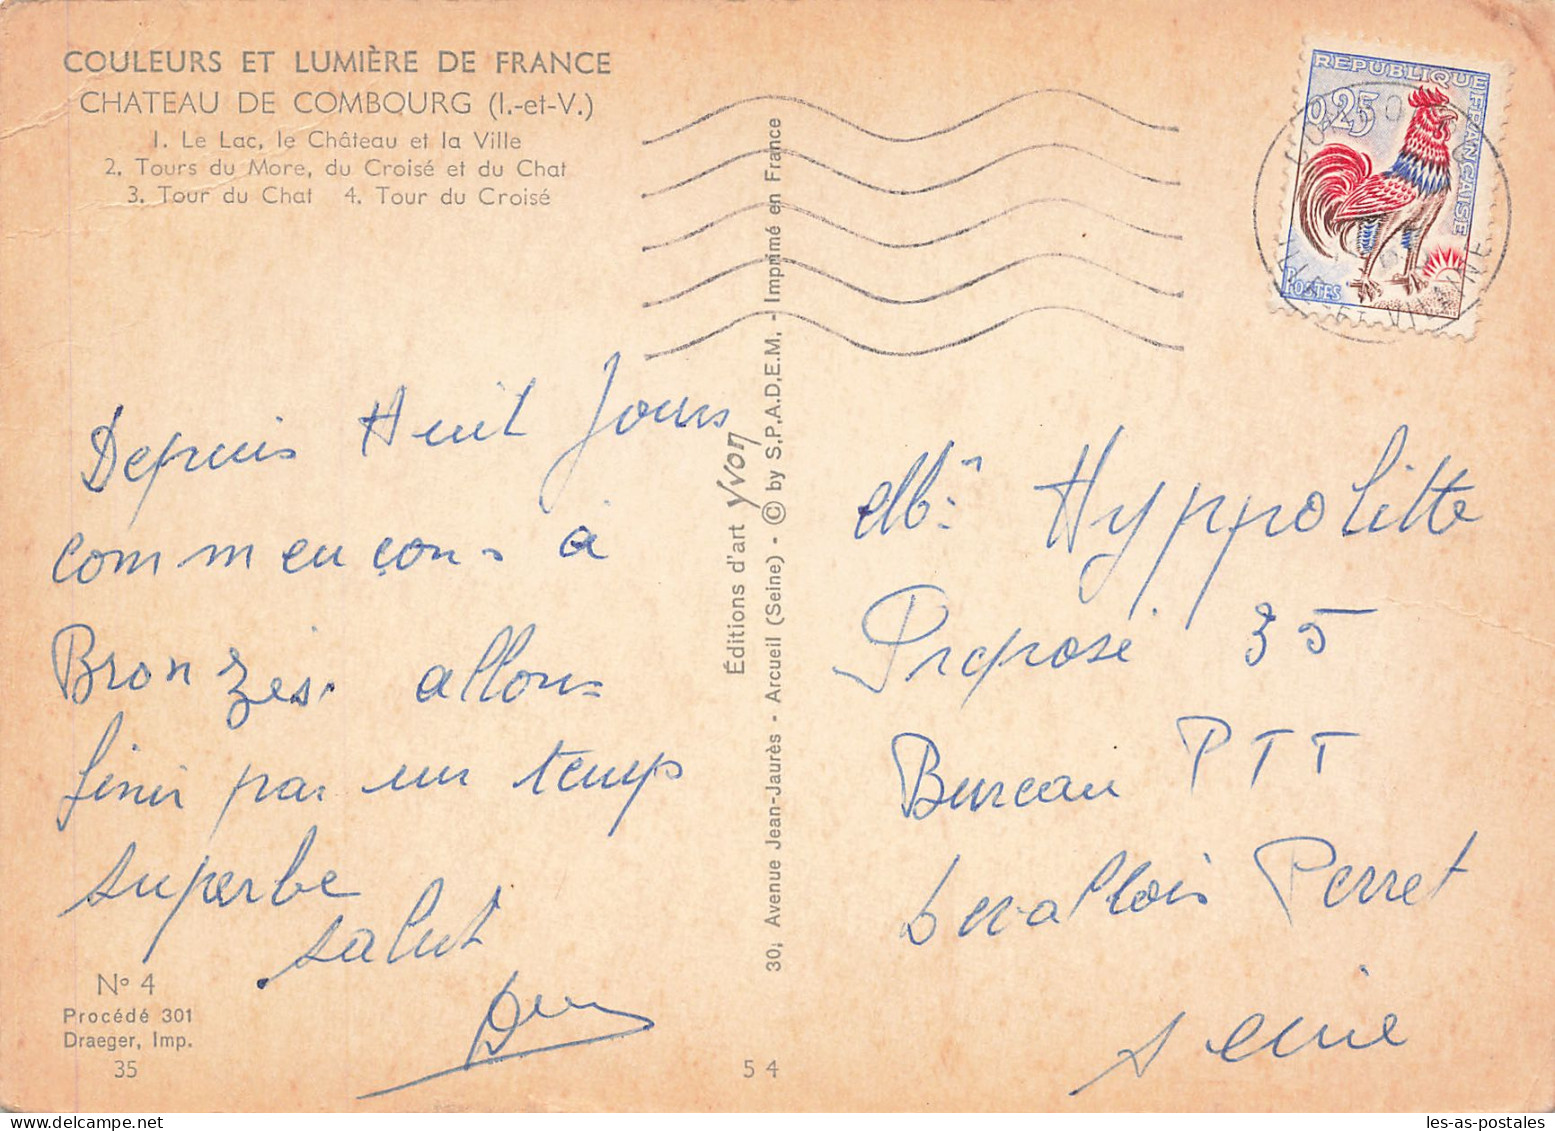 COULEURS ET LUMIÈRE DE FRANCE
CHATEAU DE COMBOURG (I.-et-V.)
1. Le Lac, le Château et la Ville
2. Tours du More, du Croisé et du Chat
3. Tour du Chat 4. Tour du Croisé
REPUBLIQUE FRANÇAISE
0,25
POSTES
ILLE-ET-VILAINE
Depuis Huit Jours
commençons à
Bronzés. allons
finir par un temps
superbe
salut
N° 4
Procédé 301
Draeger, Imp.
35
54
Éditions d'art yvon
30, Avenue Jean-Jaurès - Arcueil (Seine) - © by S.P.A.D.E.M. - Imprimé en France
Hyppolitte
Préposé 35
Bureau PTT
Levallois Perret
Seine
les-as-postales